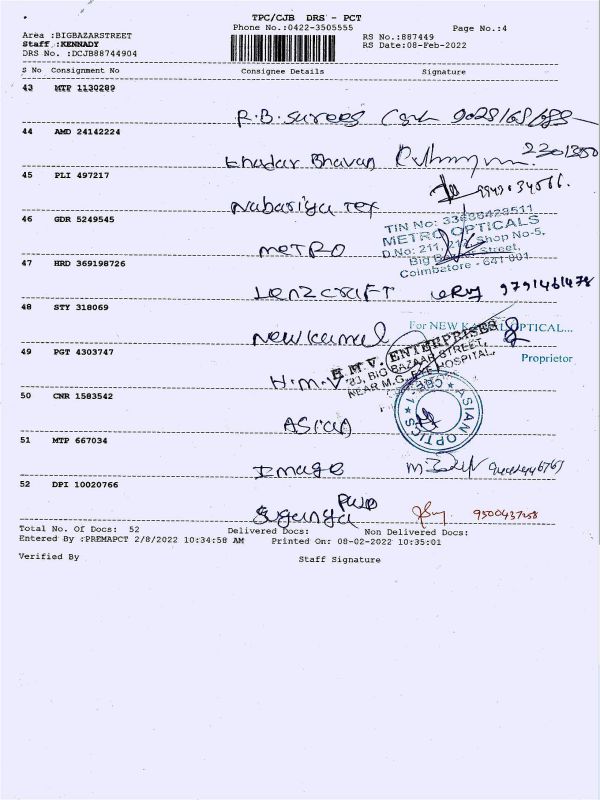 TPC/CJB DRS - PCT
Phone No.:0422-3505555 Page No.:4
Area :BIGBAZARSTREET RS No.:887449
Staff :KENNADY RS Date:08-Feb-2022
DRS No. :DCJB88744904
S No Consignment No Consignee Details Signature
43 MTP 1130289
R.B. Surees
44 AMD 24142224
Khadar Bhavan
45 PLI 497217
Nabasiya Tex
46 GDR 5249545
METRO OPTICALS
D.No: 211, Shop No-5,
Street,
Coimbatore - 641 001
METRO
47 HRD 369198726
Lenzcraft 9791461478
48 STY 318069
For NEW KAMAL OPTICAL...
New Kamal
Proprietor
49 PGT 4303747
H.M.V. ENTERPRISES
BIG BAZAAR STREET,
NEAR M.G. EYE HOSPITAL,
H.M.V
50 CNR 1583542
ASIAN OPTICS CBE-1
Asian
51 MTP 667034
Image
52 DPI 10020766
Suganya
Total No. Of Docs: 52 Delivered Docs: Non Delivered Docs:
Entered By :PREMAPCT 2/8/2022 10:34:58 AM Printed On: 08-02-2022 10:35:01
Verified By Staff Signature